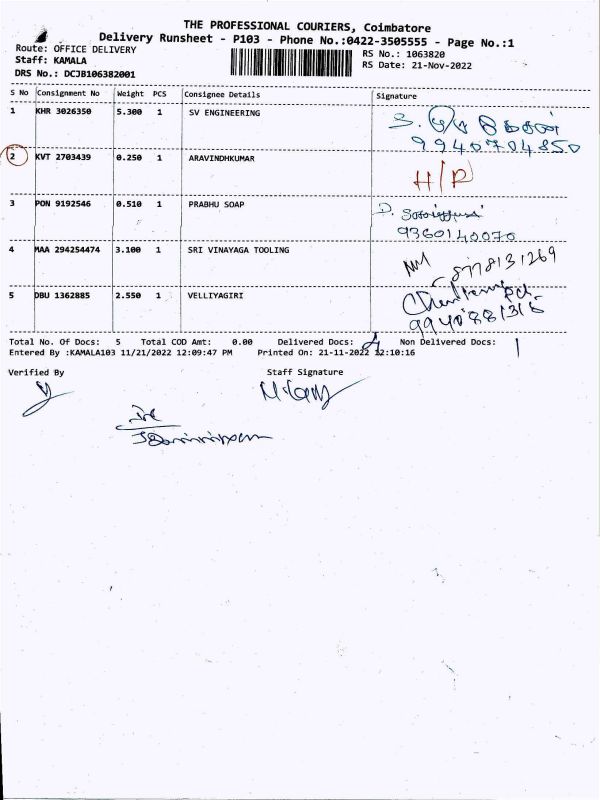 THE PROFESSIONAL COURIERS, Coimbatore
Delivery Runsheet - P103 - Phone No.:0422-3505555 - Page No.:1
Route: OFFICE DELIVERY
Staff: KAMALA
DRS No.: DCJB106382001
RS No.: 1063820
RS Date: 21-Nov-2022
S No Consignment No Weight PCS Consignee Details Signature
1 KHR 3026350 5.300 1 SV ENGINEERING
9940704850
2 KVT 2703439 0.250 1 ARAVINDHKUMAR
H/P
3 PON 9192546 0.510 1 PRABHU SOAP
9360140070
4 MAA 294254474 3.100 1 SRI VINAYAGA TOOLING
8778131269
5 DBU 1362885 2.550 1 VELLIYAGIRI
Total No. Of Docs: 5 Total COD Amt: 0.00 Delivered Docs: 4 Non Delivered Docs: 1
Entered By :KAMALA103 11/21/2022 12:09:47 PM Printed On: 21-11-2022 12:10:16
Verified By Staff Signature